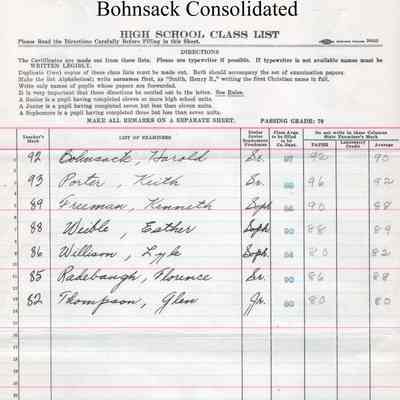 Bohnsack Consolidated
HIGH SCHOOL CLASS LIST
Please Read the Directions Carefully Before Filling in this Sheet.
DIRECTIONS
The Certificates are made out from these lists. Please use typewriter if possible. If typewriter is not available names must be
WRITTEN LEGIBLY.
Duplicate (two) copies of these class lists must be made out. Both should accompany the set of examination papers.
Make the list Alphabetical; write surnames first, as "Smith, Henry B.," writing the first Christian name in full.
Write only names of pupils whose papers are forwarded.
It is very important that these directions be carried out to the letter. See Rules.
A Senior is a pupil having completed eleven or more high school units.
A Junior is a pupil having completed seven but less than eleven units.
A Sophomore is a pupil having completed three but less than seven units.
MAKE ALL REMARKS ON A SEPARATE SHEET. PASSING GRADE: 70
Teacher's Mark LIST OF EXAMINEES Senior Junior Sophomore Freshman Class Avge. to be filled in by Co. Dept. Do not write in these Columns State Examiner's Mark
PAPER Laboratory Credit Average
92 Bohnsack, Harold Sr. 92 90
93 Porter, Keith Sr. 96 92
89 Freeman, Kenneth Soph 90 88
88 Weible, Esther Soph 88 89
86 Willison, Lyle Soph. 80 82
85 Radebaugh, Florence Sr. 86 88
82 Thompson, Glen Jr. 80 80